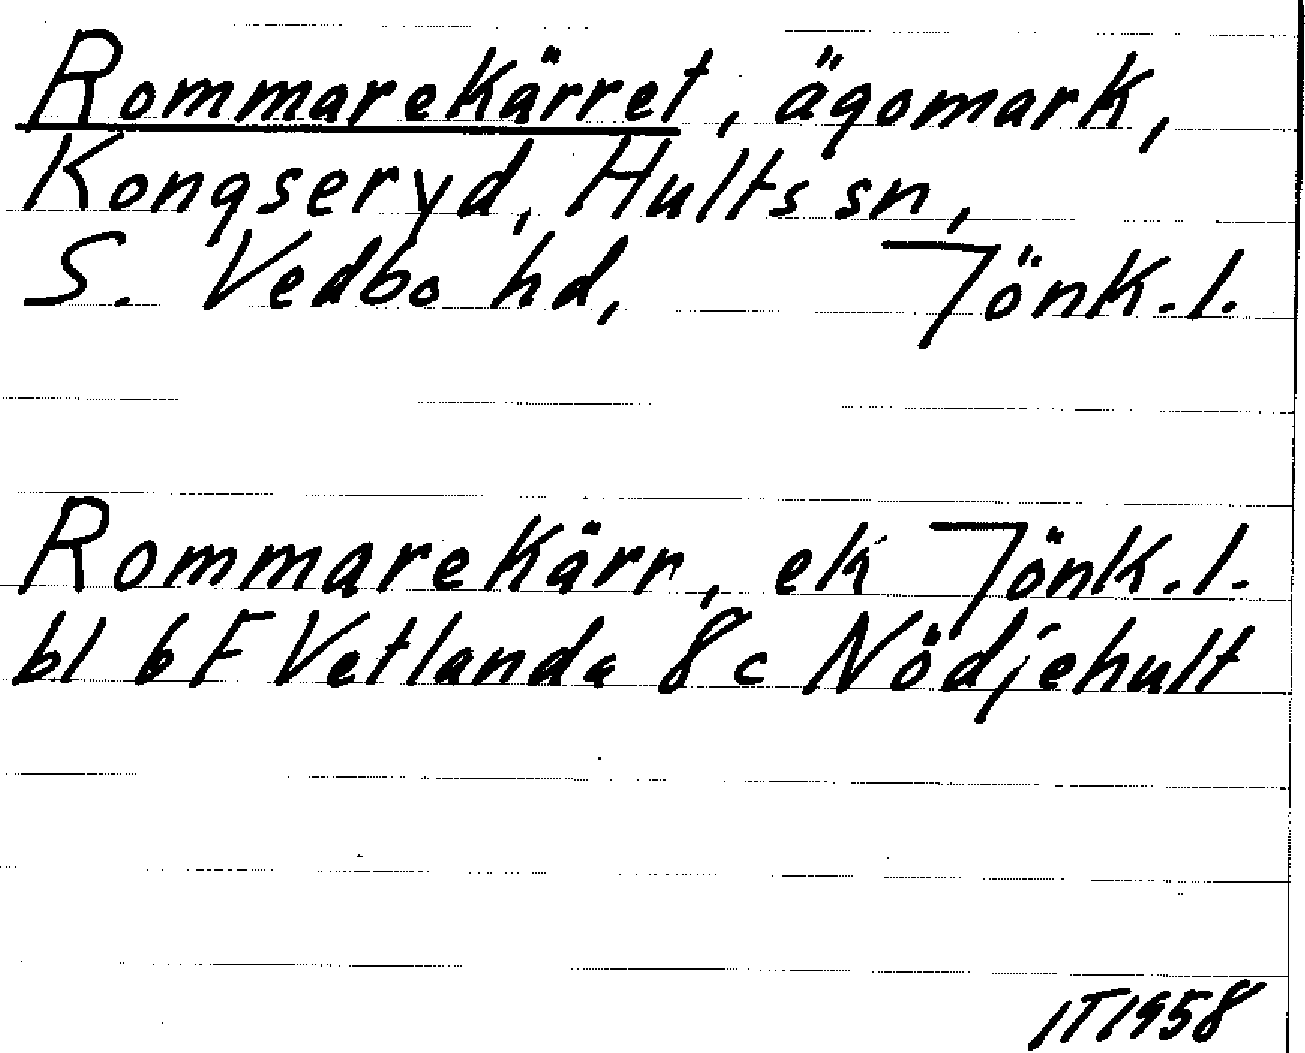 Rommarekärret, ägomark,
Kongseryd, Hults sn,
S. Vedbo hd, Jönk. l.
Rommarekärr, ek Jönk. l.
bl 6F Vetlanda 8c Nödjehult
IT 1958